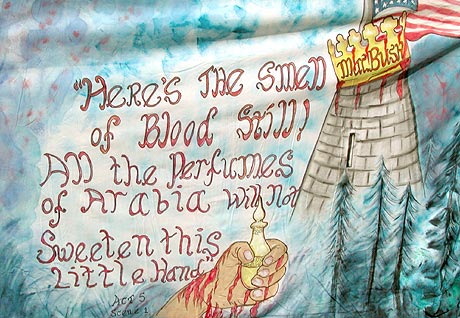 MacBush
"HERE'S THE SMEll
of Blood Still!
All the Perfumes
of Arabia Will Not
Sweeten this
Little Hand"
Act 5
Scene 1